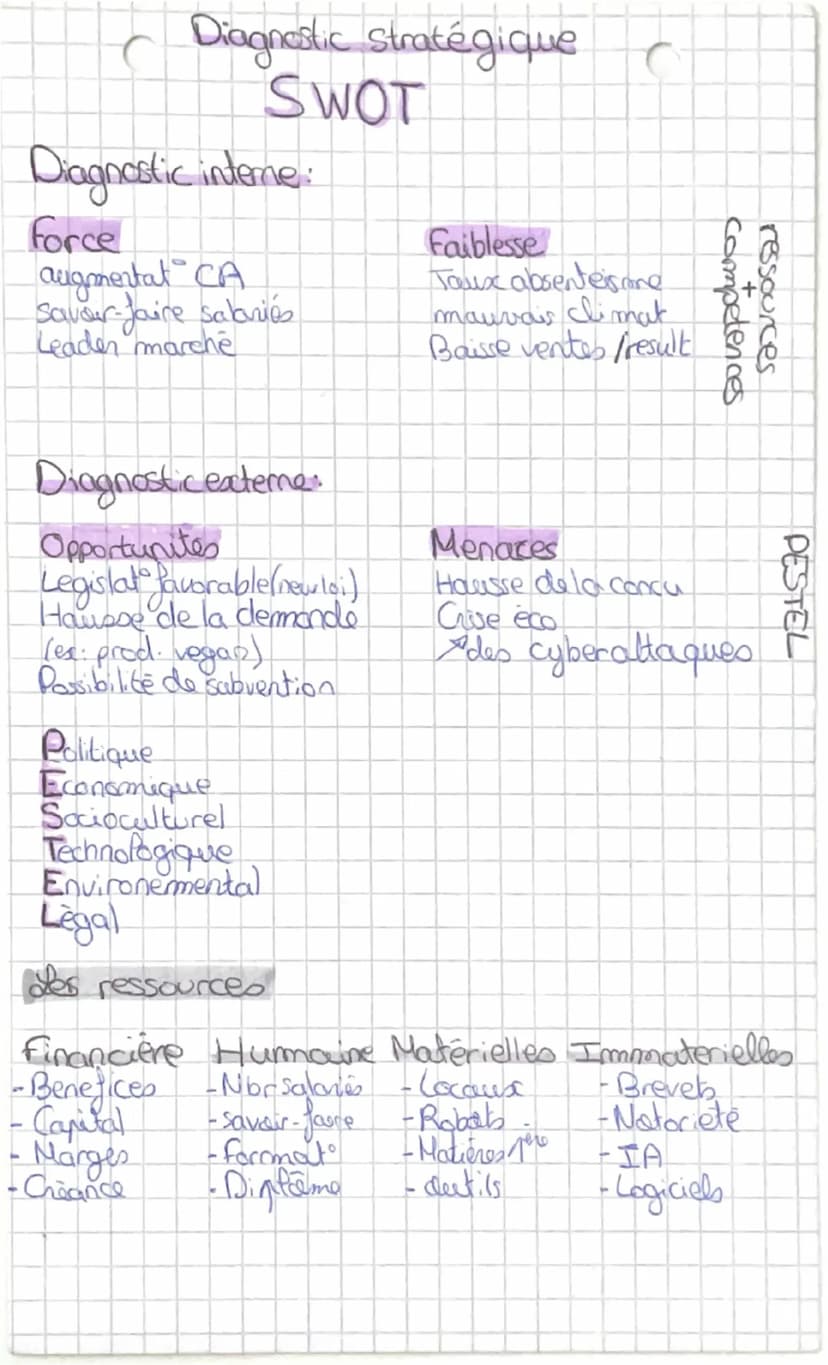 Diagnostic stratégique
SWOT
Diagnostic interne:
Force
augmentat° CA
savoir-faire salariés
Leader marché
Faiblesse
Taux absenteisme
mauvais climat
Baisse ventes / result
ressources
+
compétences
Diagnostic externe:
Opportunités
Législat° favorable (new loi)
Hausse de la demande
(ex: prod. vegan)
Possibilité de subvention
Menaces
Hausse de la concu
Crise éco
↗ des cyberattaques
PESTEL
Politique
Economique
Socioculturel
Technologique
Environemmental
Légal
Les ressources
Financière
- Benefices
- Capital
- Marges
- Créance
Humaine
- Nbr salariés
- savoir-faire
- format°
- Diplôme
Matérielles
- Locaux
- Robots
- Matières 1ère
- outils
Immaterielles
- Brevets
- Notorieté
- IA
- Logiciels